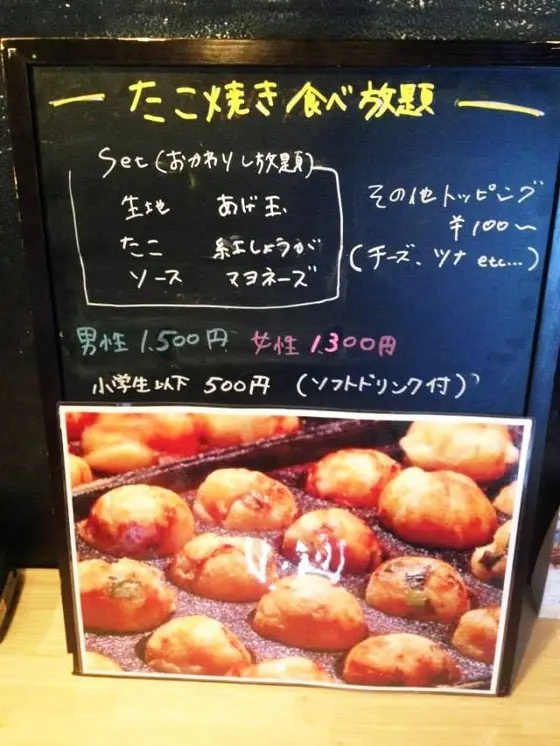 たこ焼き食べ放題
Set(おかわりし放題)
生地 あげ玉
たこ 紅しょうが
ソース マヨネーズ
その他トッピング
¥100〜
(チーズ、ツナ etc...)
男性 1.500円 女性 1.300円
小学生以下 500円 (ソフトドリンク付)